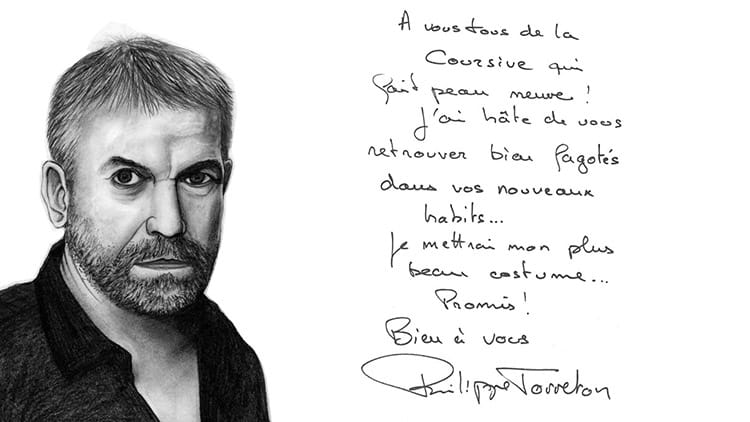 A vous tous de la
Coursive qui
fait peau neuve !
J'ai hâte de vous
retrouver bien fagotés
dans vos nouveaux
habits...
Je mettrai mon plus
beau costume...
Promis !
Bien à vous
Philippe Torreton